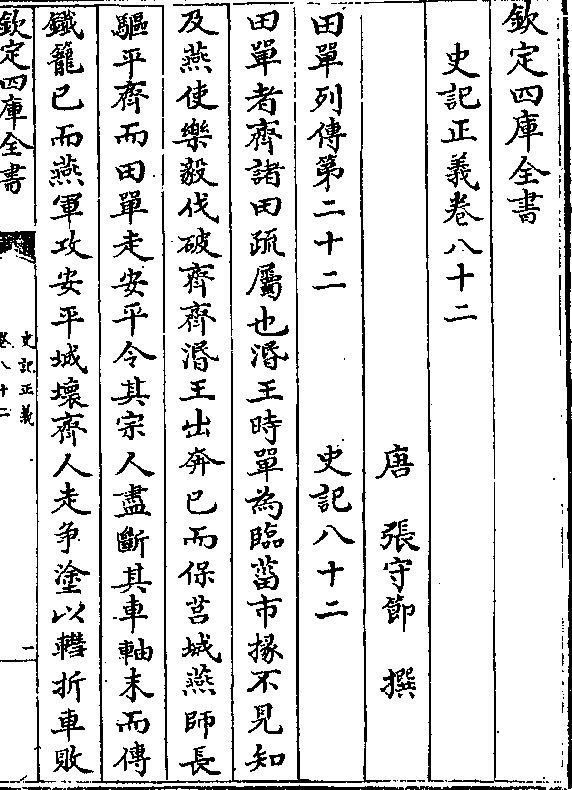 欽定四庫全書
史記正義卷八十二
唐 張守節 撰
田單列傳第二十二 史記八十二
田單者齊諸田疏屬也湣王時單為臨菑市掾不見知
及燕使樂毅伐破齊齊湣王出奔已而保莒城燕師長
驅平齊而田單走安平令其宗人盡斷其車軸末而傅
鐵籠已而燕軍攻安平城壞齊人走爭塗以轊折車敗
欽定四庫全書
史記正義
卷八十二
一